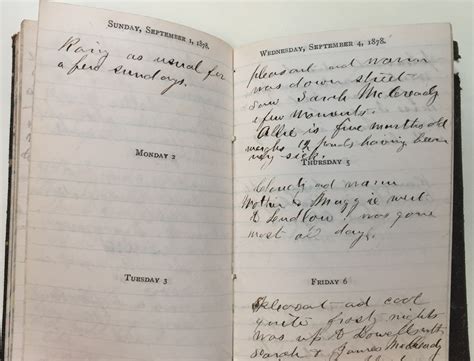 SUNDAY, SEPTEMBER 1, 1878.
Rainy as usual for
a few sundays.
MONDAY 2
TUESDAY 3
WEDNESDAY, SEPTEMBER 4, 1878.
pleasant and warm
was down street
saw Sarah McCready
a few moments.
Allie is five months old
weighs 12 pounds having been
very sick.
THURSDAY 5
Cloudy and warm
Mother & Maggie went
to Ludlow was gone
most all day.
FRIDAY 6
Pleasant ad cool
quite frost nights
was up to
Sarah & James McCready